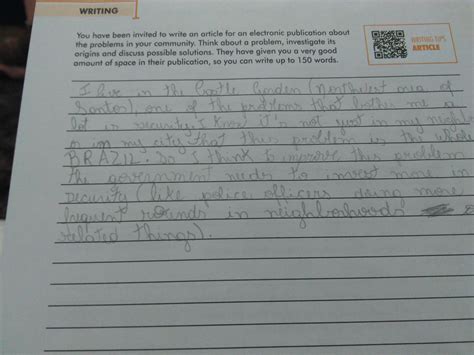 WRITING
You have been invited to write an article for an electronic publication about
the problems in your community. Think about a problem, investigate its
origins and discuss possible solutions. They have given you a very good
amount of space in their publication, so you can write up to 150 words.
WRITING TIPS
ARTICLE
I live in the Castle Garden (Northwest area of
Santos), one of the problems that bother me a
lot is security, I know it's not just in my
or in my city, that this problem is the whole
BRAZIL. So I think to improve this problem
the government needs to invest more in
security (like police officers doing more
frequent rounds in neighborhoods
related things).